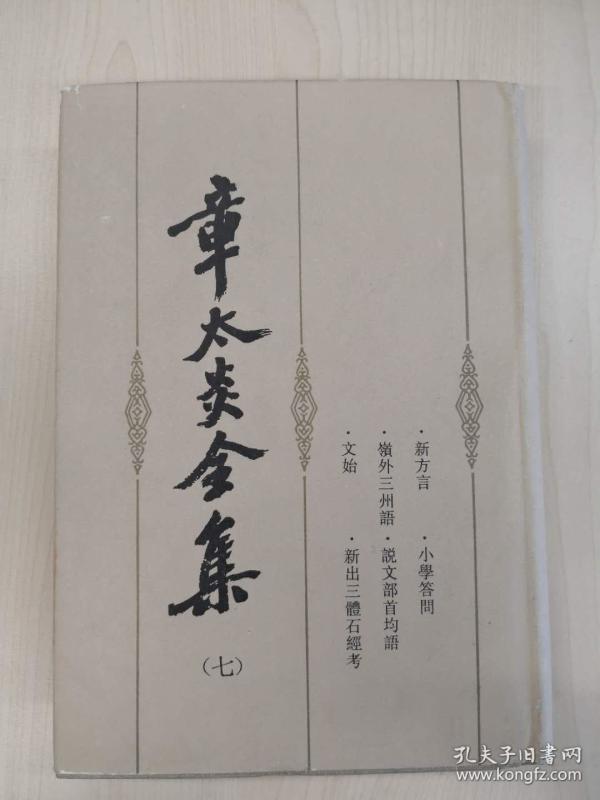 章太炎全集
(七)
·新方言 ·小學答問
·嶺外三州語·說文部首均語
·文始 ·新出三體石經考
孔夫子旧书网
www.kongfz.com